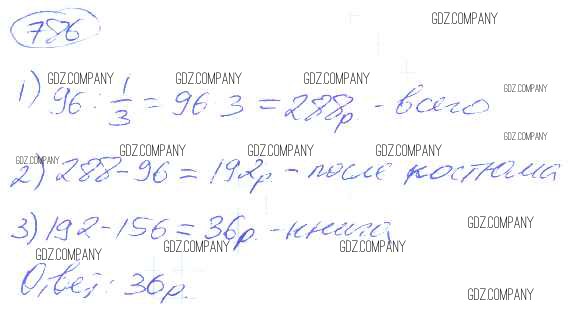 786
GDZ.COMPANY
GDZ.COMPANY GDZ.COMPANY GDZ.COMPANY GDZ.COMPANY
1) 96 : 1/3 = 96 3 = 288р - всего
GDZ.COMPANY
GDZ.COMPANY GDZ.COMPANY GDZ.COMPANY GDZ.COMPANY
2) 288 - 96 = 192р. - после костюма
3) 192 - 156 = 36р. - книга
GDZ.COMPANY
GDZ.COMPANY GDZ.COMPANY GDZ.COMPANY
Ответ: 36р.
GDZ.COMPANY